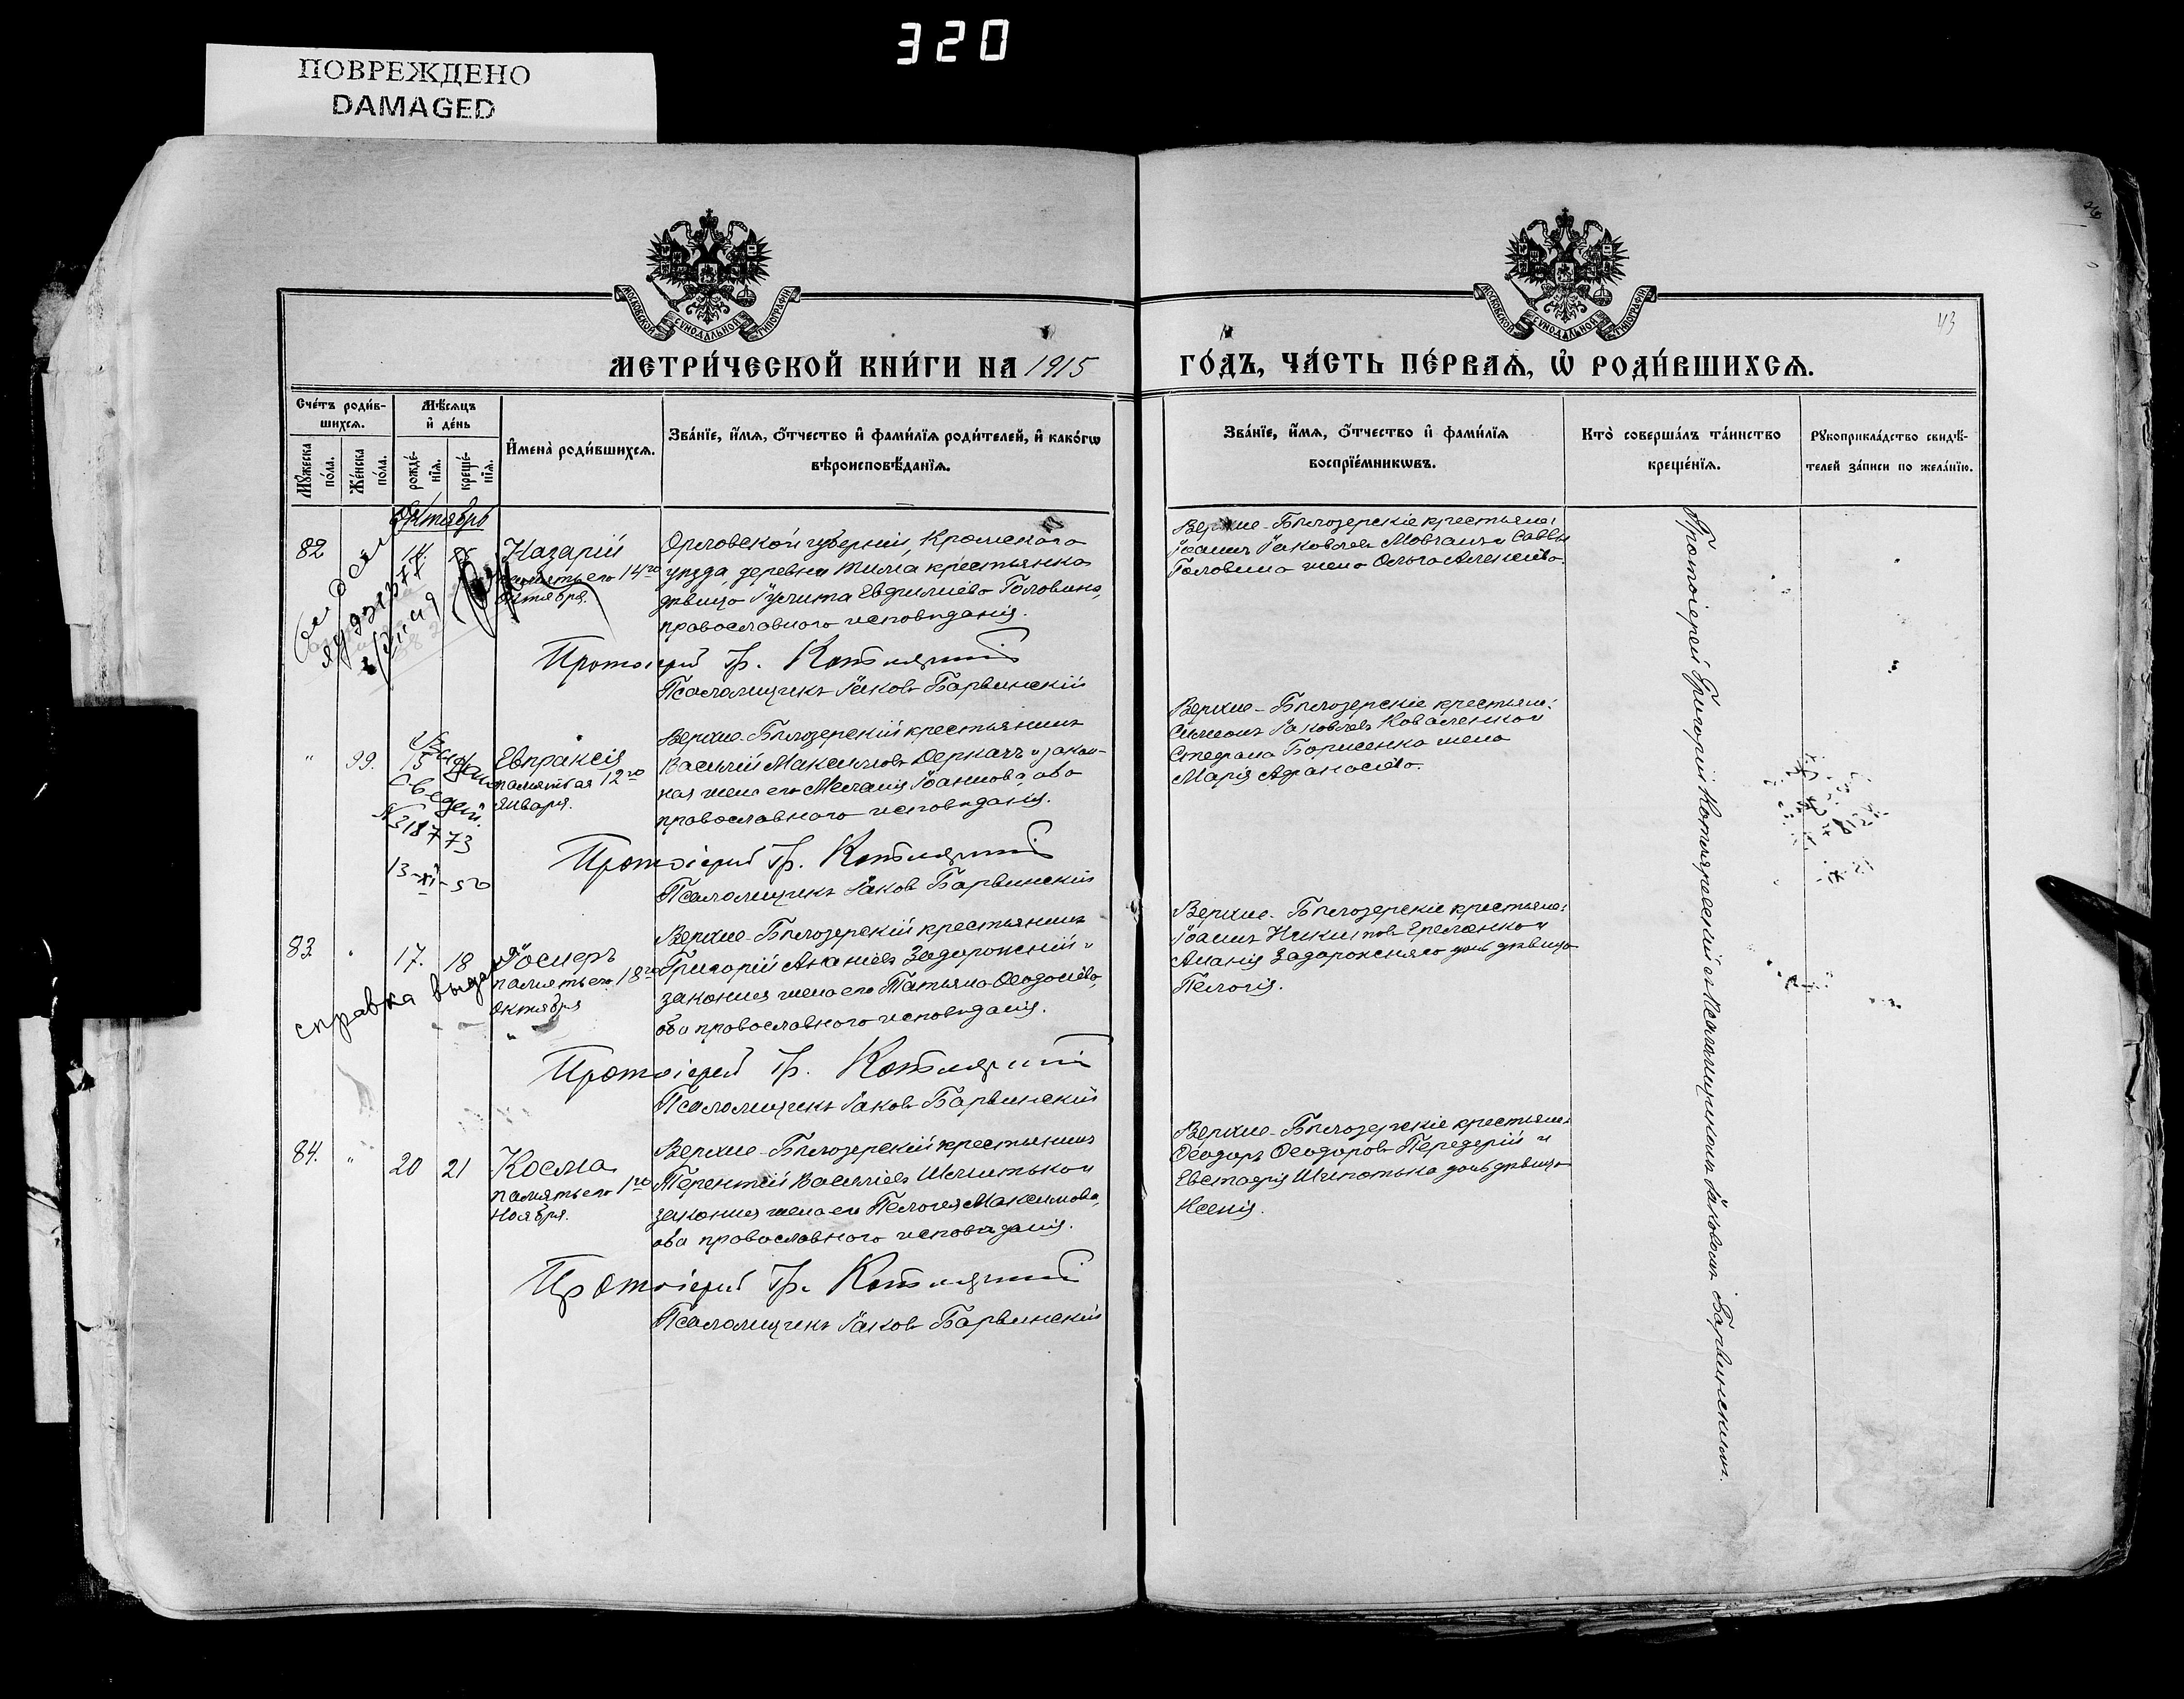 320
ПОВРЕЖДЕНО
DAMAGED
МОСКОВСКОЙ СѴНОДАЛЬНОЙ ТИПОГРАФІИ
МОСКОВСКОЙ СѴНОДАЛЬНОЙ ТИПОГРАФІИ
43
МЕТРИ́ЧЕСКОЙ КНИ́ГИ НА 1915
ГО́ДЪ, ЧА́СТЬ ПЕ́РВАѦ, Ѡ҆ РОДИ́ВШИХСѦ.
Сче́тъ роди́в-
шихсѧ.
Мѣ́сѧцъ
и҆ де́нь
Мꙋ́жеска
по́ла.
Же́нска
по́ла.
рожде́-
нїѧ.
креще́-
нїѧ.
И҆мена̀ роди́вшихсѧ.
Зва́нїе, и҆́мѧ, ѻ҆́тчество и҆ фами́лїѧ роди́телей, и҆ како́гѡ
вѣроисповѣ́данїѧ.
Зва́нїе, и҆́мѧ, ѻ҆́тчество и҆ фами́лїѧ
воспрїе́мникѡвъ.
Кто̀ соверша́лъ та́инство
креще́нїѧ.
Рꙋкоприкла́дство свидѣ́-
телей за́писи по жела́нїю.
Октябрь
82
14
Назарій
память его 14го
октября.
Орловской губерніи, Кромскаго
уѣзда, деревни
крестьянка
дѣвица
Головина,
православнаго исповѣданія.
Протоіерей Гр. Котляревскій
Псаломщикъ Іаковъ Барвинскій
Верхне-Бѣлозерскіе крестьяне:
Іоаннъ Іаковлевъ Мовчанъ и Саввы
Головина жена Ольга Алексѣева.
" 99. 15
Евпраксія
память ея 12го
января.
сведен.
№ 318773
13-XI-50
Верхне-Бѣлозерскій крестьянинъ
Василій Максимовъ Деркачъ и закон-
ная жена его Меланія Іоаннова, оба
православнаго исповѣданія.
Протоіерей Гр. Котляревскій
Псаломщикъ Іаковъ Барвинскій
Верхне-Бѣлозерскіе крестьяне:
Симеонъ Іаковлевъ Коваленко и
Стефана Борисенка жена
Марія Афанасіева.
83. " 17. 18
Іосифъ
память его 18го
октября
справка выдана
Верхне-Бѣлозерскій крестьянинъ
Григорій Ананіевъ Задорожный и
законная жена его Татьяна Ѳеодосіева,
оба православнаго исповѣданія.
Протоіерей Гр. Котляревскій
Псаломщикъ Іаковъ Барвинскій
Верхне-Бѣлозерскіе крестьяне:
Іоаннъ Никитовъ Еременко и
Ананія Задорожняго дочь дѣвица
Пелагія.
84. " 20 21
Косма
память его 1го
ноября.
Верхне-Бѣлозерскій крестьянинъ
Терентій Василіевъ Шипитько и
законная жена его Пелагея Максимова,
оба православнаго исповѣданія.
Протоіерей Гр. Котляревскій
Псаломщикъ Іаковъ Барвинскій
Верхне-Бѣлозерскіе крестьяне:
Ѳеодоръ Ѳеодоровъ Передерій и
Евстафія Шипотька дочь дѣвица
Ксенія.
Протоіерей Григорій Котляревскій съ псаломщикомъ Іаковомъ Барвинскимъ.